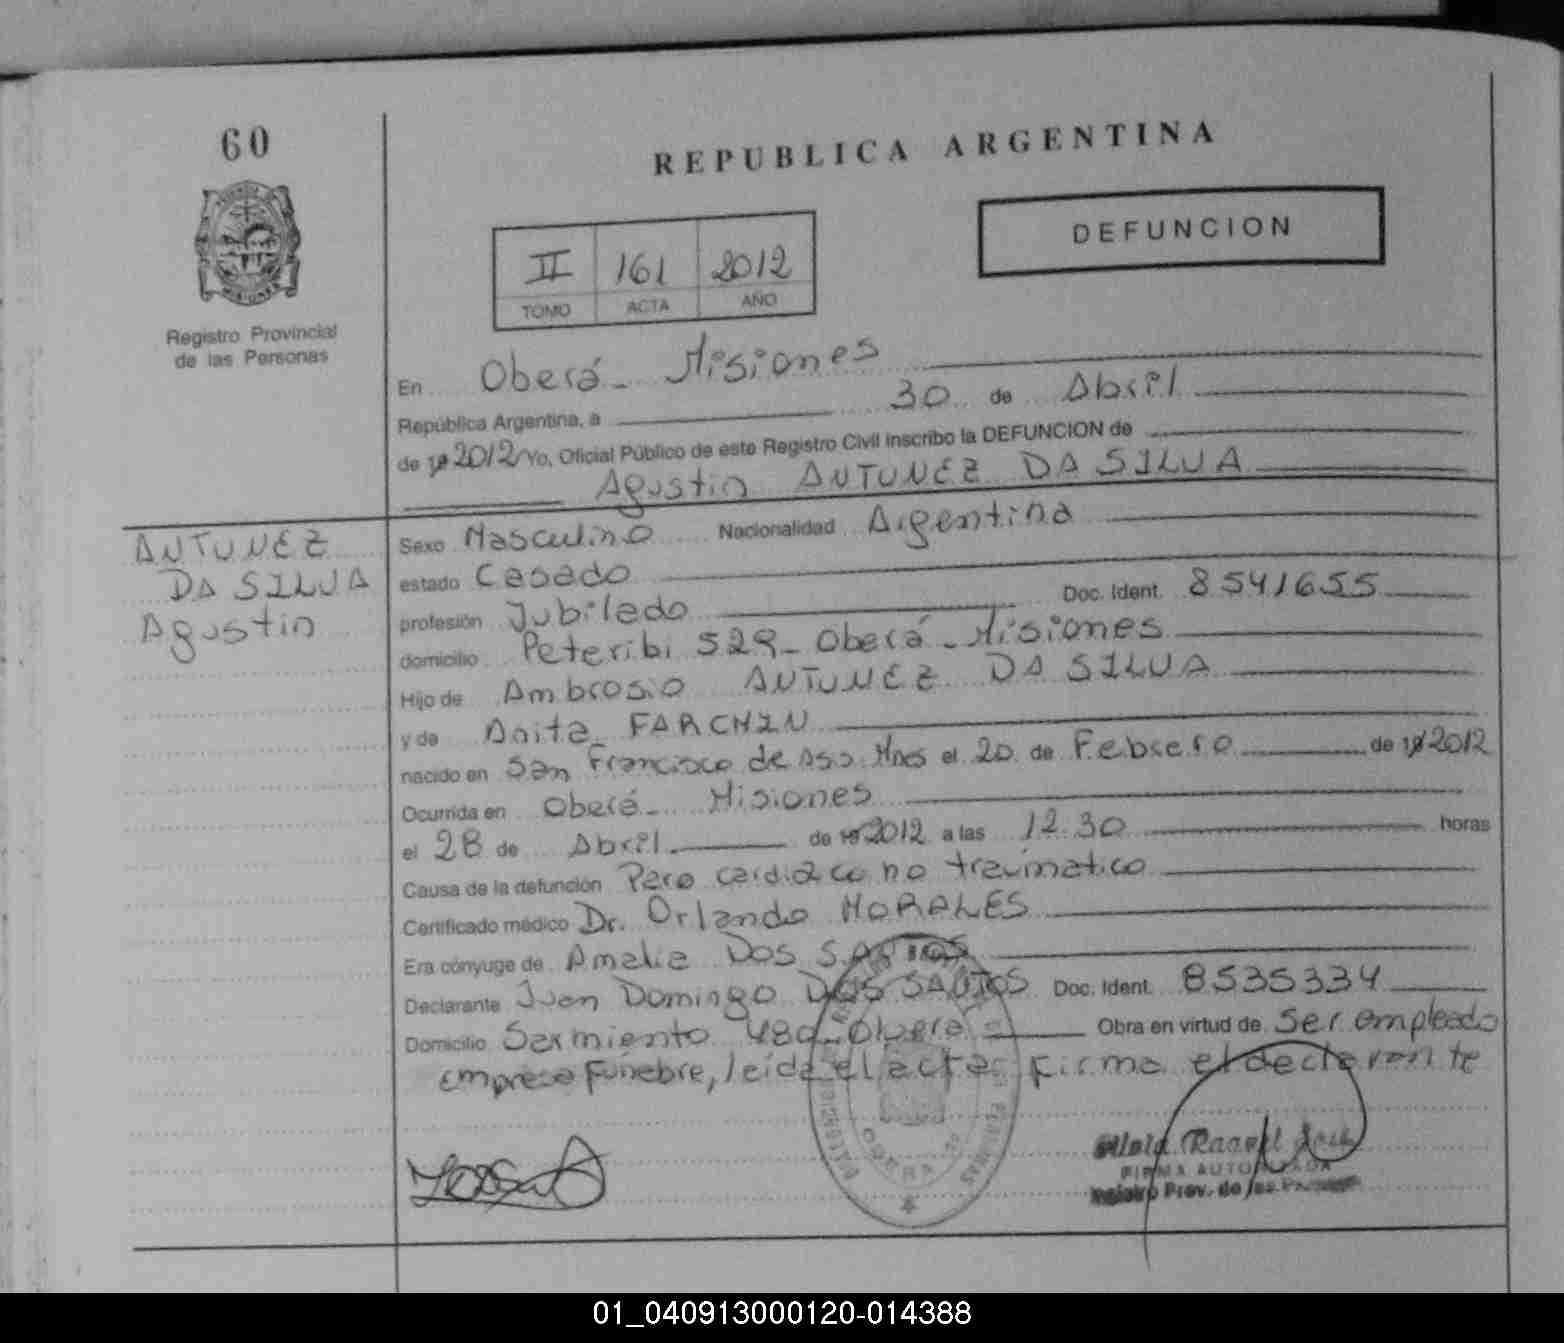 60
REPUBLICA ARGENTINA
DEFUNCION
II 161 2012
TOMO ACTA AÑO
Registro Provincial
de las Personas
En Oberá - Misiones
República Argentina, a 30 de Abril
de 2012 Yo, Oficial Público de este Registro Civil inscribo la DEFUNCION de
Agustin ANTUNEZ DA SILVA
ANTUNEZ
DA SILVA
Agustin
Sexo Masculino Nacionalidad Argentina
estado Casado
profesión Jubilado Doc. Ident. 8541655
domicilio Peteribi 529 - Oberá - Misiones
Hijo de Ambrosio ANTUNEZ DA SILVA
y de Anita FARCHIN
nacido en San Francisco de Asis Mnes el 20 de Febrero de 2012
Ocurrida en Oberá - Misiones
el 28 de Abril de 2012 a las 12.30 horas
Causa de la defunción Paro cardiaco no traumatico
Certificado médico Dr. Orlando MORALES
Era cónyuge de Amalia DOS SANTOS
Declarante Juan Domingo DOS SANTOS Doc. Ident. 8535334
Domicilio Sarmiento 480 - Obera Obra en virtud de Ser empleado
empresa Funebre, leida el acta firma el declarante
OBERA
FIRMA AUTORIZADA
Registro Prov. de las Personas
01_040913000120-014388